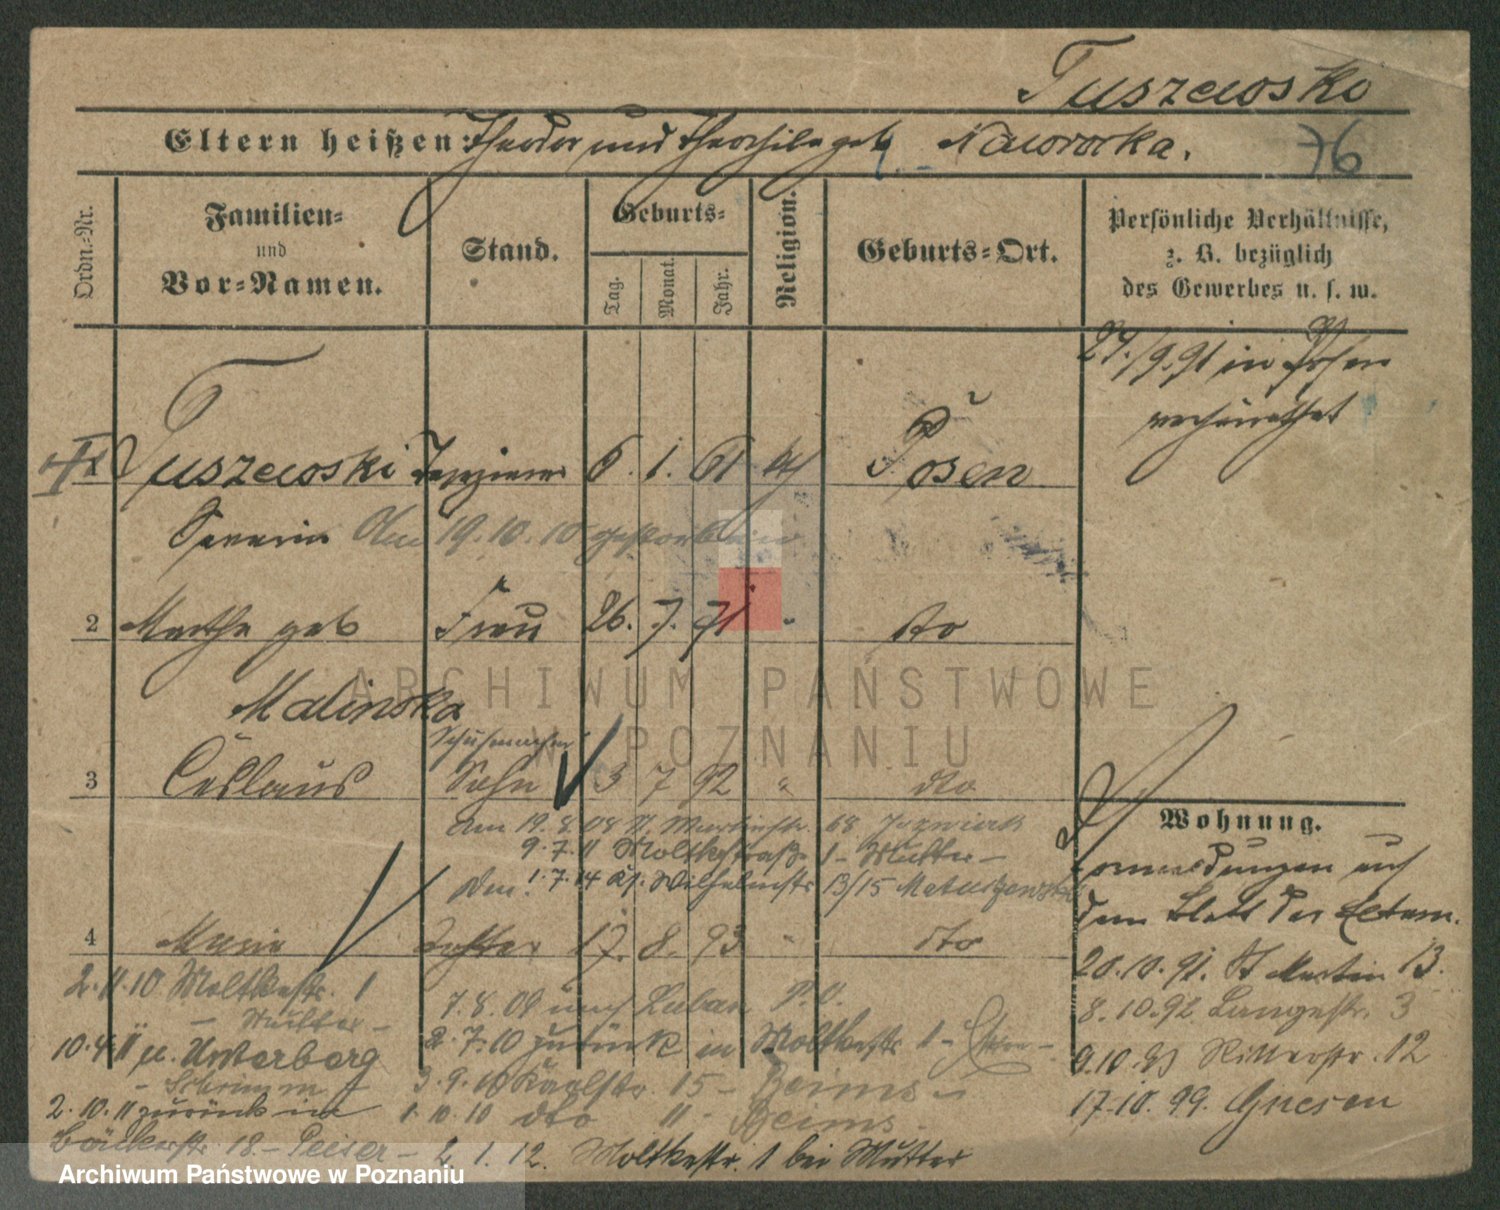 Tuszewski
Eltern heißen: Theodor und Theophila geb. Nawrocka.
76
Ordn.-Nr.
Familien- und Vor-Namen.
Stand.
Geburts-
Tag.
Monat.
Jahr.
Religion.
Geburts-Ort.
Persönliche Verhältnisse, z. B. bezüglich des Gewerbes u. s. w.
1 Tuszewski Tapezierer 6. 1. 61 kth Posen
Severin Am 19.10.10 gestorben
/9.91 in Posen
verheirathet
2 Martha geb Frau 26. 7. 71 " dto
Malinska
Schuhmacher
3 Ceslaus Sohn 3 7 92 " dto
am 19.8.08 St. Martinstr. 68 Jozwiak
9.7.11 Moltkestraße 1 - Mutter -
Den 1.7.14 Wilhelmstr 13/15
Wohnung.
dem Blatt der Eltern.
4 Maria Tochter 17. 8. 93 " dto
20.10.91. St Martin 13.
2.11.10 Moltkestr. 1
- Mutter -
7.8.08 nach Luban P.O.
8.10.92 Langestr. 3
10.4.11 n. Unterberg
2.7.10 zurück in Moltkestr 1 -
9.10.93 Ritterstr. 12
- Schrimm -
3.9.10 Karlstr 15 - Beims -
17.10.99. Gnesen
2.10.11 zurück in
1.10.10 dto 11 - Beims -
Bäckerstr. 18. - Peiser -
2.1.12. Moltkestr. 1 bei Mutter
ARCHIWUM PAŃSTWOWE
W POZNANIU
Archiwum Państwowe w Poznaniu